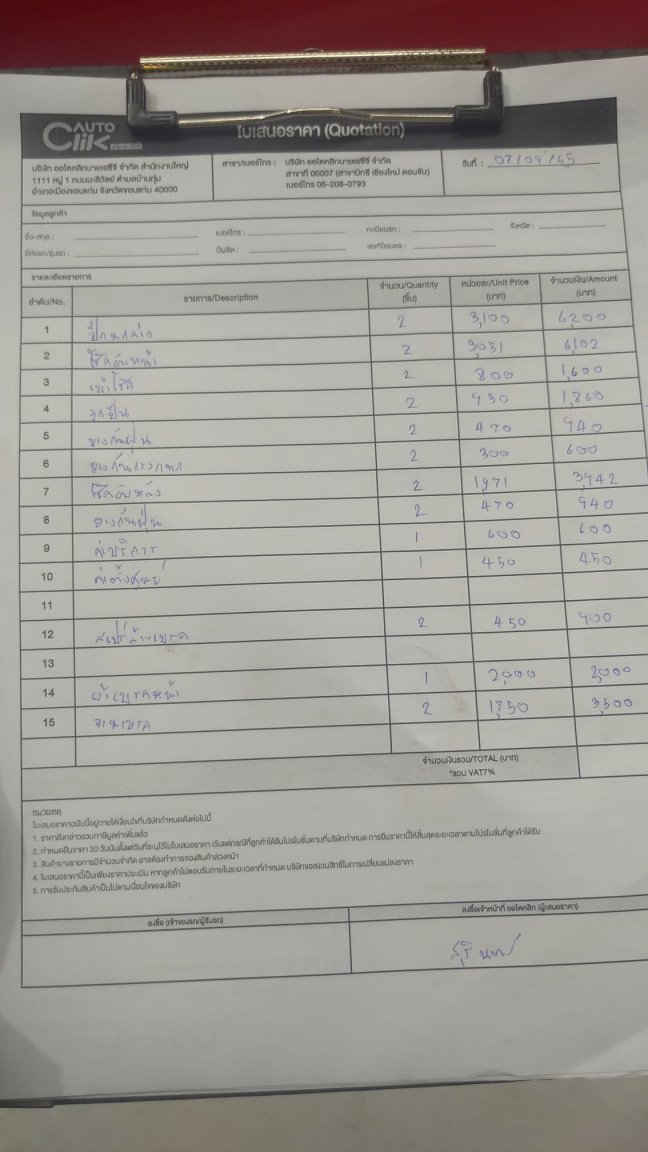 AUTO
Clik
ใบเสนอราคา (Quotation)
บริษัท ออโตคลิกบายเอซีจี จำกัด สำนักงานใหญ่
1111 หมู่ 1 ถนนมะลิวัลย์ ตำบลบ้านทุ่ม
อำเภอเมืองขอนแก่น จังหวัดขอนแก่น 40000
สาขา/เบอร์โทร : บริษัท ออโตคลิกบายเอซีจี จำกัด
สาขาที่ 00007 (สาขาบิ๊กซี เชียงใหม่ ดอนจั่น)
เบอร์โทร 05-208-0793
วันที่ : 07/09/65
ข้อมูลลูกค้า
ชื่อ-สกุล : เบอร์โทร : ทะเบียนรถ : จังหวัด :
ยี่ห้อรถ/รุ่นรถ : ปีผลิต : เลขกิโลเมตร :
รายละเอียดรายการ
ลำดับ/No. รายการ/Description จำนวน/Quantity (ชิ้น) หน่วยละ/Unit Price (บาท) จำนวนเงิน/Amount (บาท)
1 ปีกนกล่าง 2 3,100 6,200
2 โช๊คอัพหน้า 2 3,031 6,102
3 เบ้าโช๊ค 2 800 1,600
4 ลูกปืน 2 930 1,860
5 ยางกันฝุ่น 2 470 940
6 ยางกันกระแทก 2 300 600
7 โช๊คอัพหลัง 2 1,971 3,942
8 ยางกันฝุ่น 2 470 940
9 ค่าบริการ 1 600 600
10 ค่าตั้งศูนย์ 1 450 450
11
12 สเปรย์ล้างเบรค 2 450 900
13
14 ผ้าเบรคหน้า 1 2,000 2,000
15 จานเบรค 2 1,750 3,500
จำนวนเงินรวม/TOTAL (บาท)
*รวม VAT7%
หมายเหตุ
ใบเสนอราคาฉบับนี้อยู่ภายใต้เงื่อนไขที่บริษัทกำหนดดังต่อไปนี้
1. ราคาดังกล่าวรวมภาษีมูลค่าเพิ่มแล้ว
2. กำหนดยืนราคา 30 วันนับตั้งแต่วันที่ระบุไว้ในใบเสนอราคา เว้นแต่กรณีที่ลูกค้าได้รับโปรโมชั่นตามที่บริษัทกำหนด การยืนราคานี้ให้สิ้นสุดระยะเวลาตามโปรโมชั่นที่ลูกค้าได้รับ
3. สินค้าบางรายการมีจำนวนจำกัด อาจต้องทำการจองสินค้าล่วงหน้า
4. ใบเสนอราคานี้เป็นเพียงราคาประเมิน หากลูกค้าไม่ตอบรับภายในระยะเวลาที่กำหนด บริษัทขอสงวนสิทธิ์ในการเปลี่ยนแปลงราคา
5. การรับประกันสินค้าเป็นไปตามเงื่อนไขของบริษัท
ลงชื่อ (เจ้าของรถ/ผู้รับรถ)
ลงชื่อเจ้าหน้าที่ ออโตคลิก (ผู้เสนอราคา)